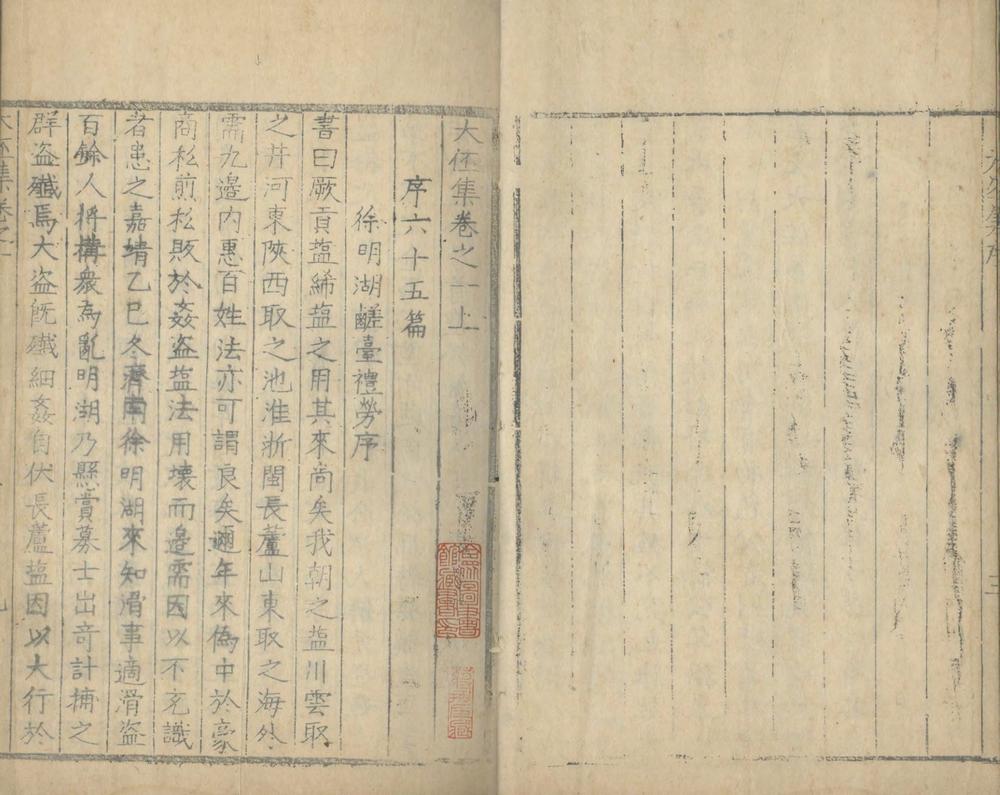 大伾集卷之一上
序六十五篇
徐明湖鹾臺禮勞序
書曰厥貢塩絺塩之用其來尚矣我朝之塩川雲取
之井河東陜西取之池淮浙閩長蘆山東取之海外
需九邊内惠百姓法亦可謂良矣邇年來偽中於豪
商私煎私販於姦盗塩法用壞而邊需因以不充識
者患之嘉靖乙巳冬濟南徐明湖來知滑事適滑盗
百餘人將構衆為亂明湖乃懸賞募士出竒計捕之
群盗殱焉大盗旣殱細姦自伏長蘆塩因以大行於
大伾集卷之一
三